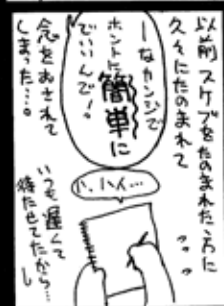 以前 スケブをたのまれた方に
久々にたのまれて
こーなカンジで
ホントに簡単に
でいいんで!
念をおされて
しまった…。
いつも遅くて
待たせてたから…